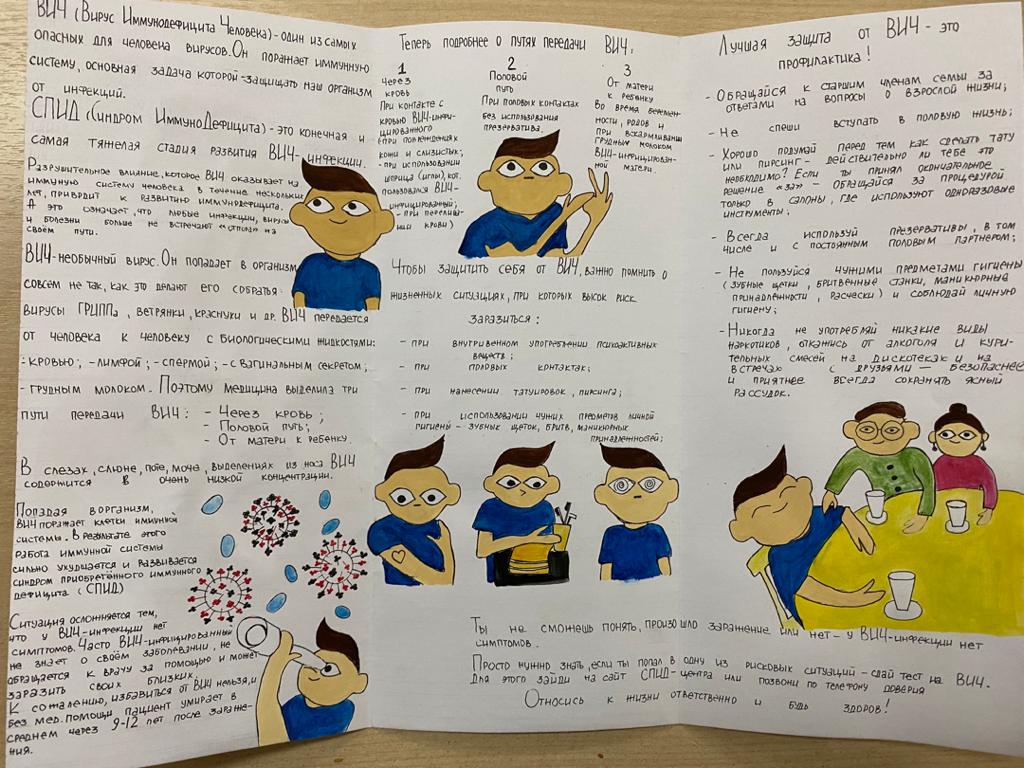 ВИЧ (Вирус Иммунодефицита Человека) - один из самых
опасных для человека вирусов. Он поражает иммунную
систему, основная задача которой - защищать наш организм
от инфекций.
СПИД (Синдром ИммуноДефицита) - это конечная и
самая тяжелая стадия развития ВИЧ-инфекции.
Разрушительное влияние, которое ВИЧ оказывает на
иммунную систему человека в течение нескольких
лет, приводит к развитию иммунодефицита.
А это означает, что любые инфекции, вирусы
и болезни больше не встречают «отпора» на
своём пути.
ВИЧ-необычный вирус. Он попадает в организм
совсем не так, как это делают его собратья:
вирусы ГРИППа, ветрянки, краснухи и др. ВИЧ передается
от человека к человеку с биологическими жидкостями:
- кровью; - лимфой; - спермой; - с вагинальным секретом;
- грудным молоком. Поэтому медицина выделила три
пути передачи ВИЧ: - Через кровь;
- Половой путь;
- От матери к ребенку.
В слезах, слюне, поте, моче, выделениях из носа ВИЧ
содержится в очень низкой концентрации.
Попадая в организм,
ВИЧ поражает клетки имунной
системы. В результате этого
работа иммунной системы
сильно ухудшается и развивается
синдром приобретённого иммунного
дефицита (СПИД)
Ситуация осложняется тем,
что у ВИЧ-инфекции нет
симптомов. Часто ВИЧ-инфицированный
не знает о своём заболевании, не
обращается к врачу за помощью и может
заразить своих близких.
К сожалению, избавиться от ВИЧ нельзя, и
без мед. помощи пациент умирает в
среднем через 9-12 лет после зараже-
ния.
Теперь подробнее о путях передачи ВИЧ:
1
Через
кровь
При контакте с
кровью ВИЧ-инфи-
цированного
(при повреждениях
кожи и слизистых;
- при использовании
шприца (иглы), кот.
пользовался ВИЧ-
инфицированный;
- при перелива-
нии крови)
2
Половой
путь
При половых контактах
без использования
презерватива.
3
От матери
к ребенку
Во время беремен-
ности, родов и
при вскармливании
грудным молоком
ВИЧ-инфицирован-
ной матери.
Чтобы защитить себя от ВИЧ, важно помнить о
жизненных ситуациях, при которых высок риск
заразиться:
- при внутривенном употреблении психоактивных
веществ;
- при половых контактах;
- при нанесении татуировок, пирсинга;
- при использовании чужих предметов личной
гигиены - зубных щеток, бритв, маникюрных
принадлежностей;
Лучшая защита от ВИЧ - это
профилактика!
- Обращайся к старшим членам семьи за
ответами на вопросы о взрослой жизни;
- Не спеши вступать в половую жизнь;
- Хорошо подумай перед тем как сделать тату
или пирсинг - действительно ли тебе это
необходимо? Если ты принял окончательное
решение «за» - обращайся за процедурой
только в салоны, где используют одноразовые
инструменты;
- Всегда используй презервативы, в том
числе и с постоянным половым партнером;
- Не пользуйся чужими предметами гигиены
(зубные щетки, бритвенные станки, маникюрные
принадлежности, расчески) и соблюдай личную
гигиену;
- Никогда не употребляй никакие виды
наркотиков, откажись от алкоголя и кури-
тельных смесей на дискотеках и на
встречах с друзьями — безопаснее
и приятнее всегда сохранять ясный
рассудок.
Ты не сможешь понять, произошло заражение или нет - у ВИЧ-инфекции нет
симптомов.
Просто нужно знать, если ты попал в одну из рисковых ситуаций - сдай тест на ВИЧ.
Для этого зайди на сайт СПИД-центра или позвони по телефону доверия
Относись к жизни ответственно и будь здоров!